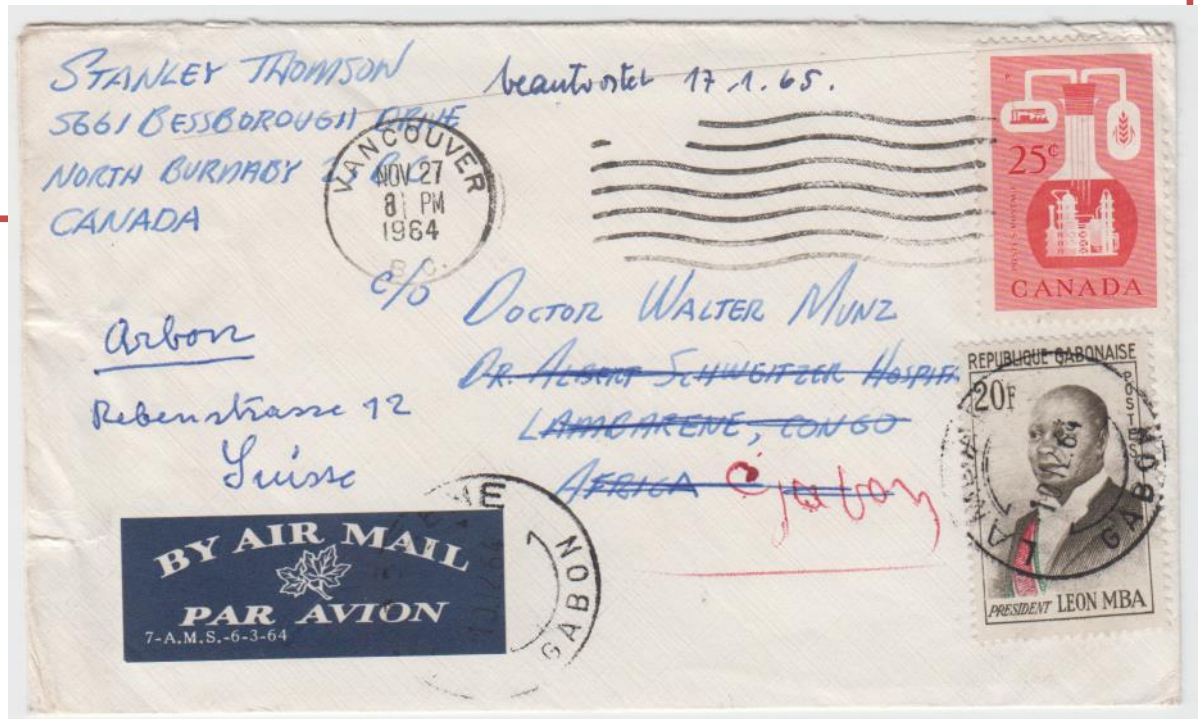 STANLEY THOMSON
5661 BESSBOROUGH DRIVE
NORTH BURNABY 2, B.C.
CANADA
beantwortet 17.1.65.
VANCOUVER
NOV 27
8 PM
1964
B.C.
25¢
POSTES POSTAGE
CANADA
c/o DOCTOR WALTER MUNZ
DR. ALBERT SCHWEITZER HOSPITA
LAMBARENE, CONGO
AFRICA Gabon
Arbon
Rebenstrasse 12
Suisse
REPUBLIQUE GABONAISE
20F
POSTES
PRESIDENT LEON MBA
GABON
BY AIR MAIL
PAR AVION
7-A.M.S.-6-3-64
GABON